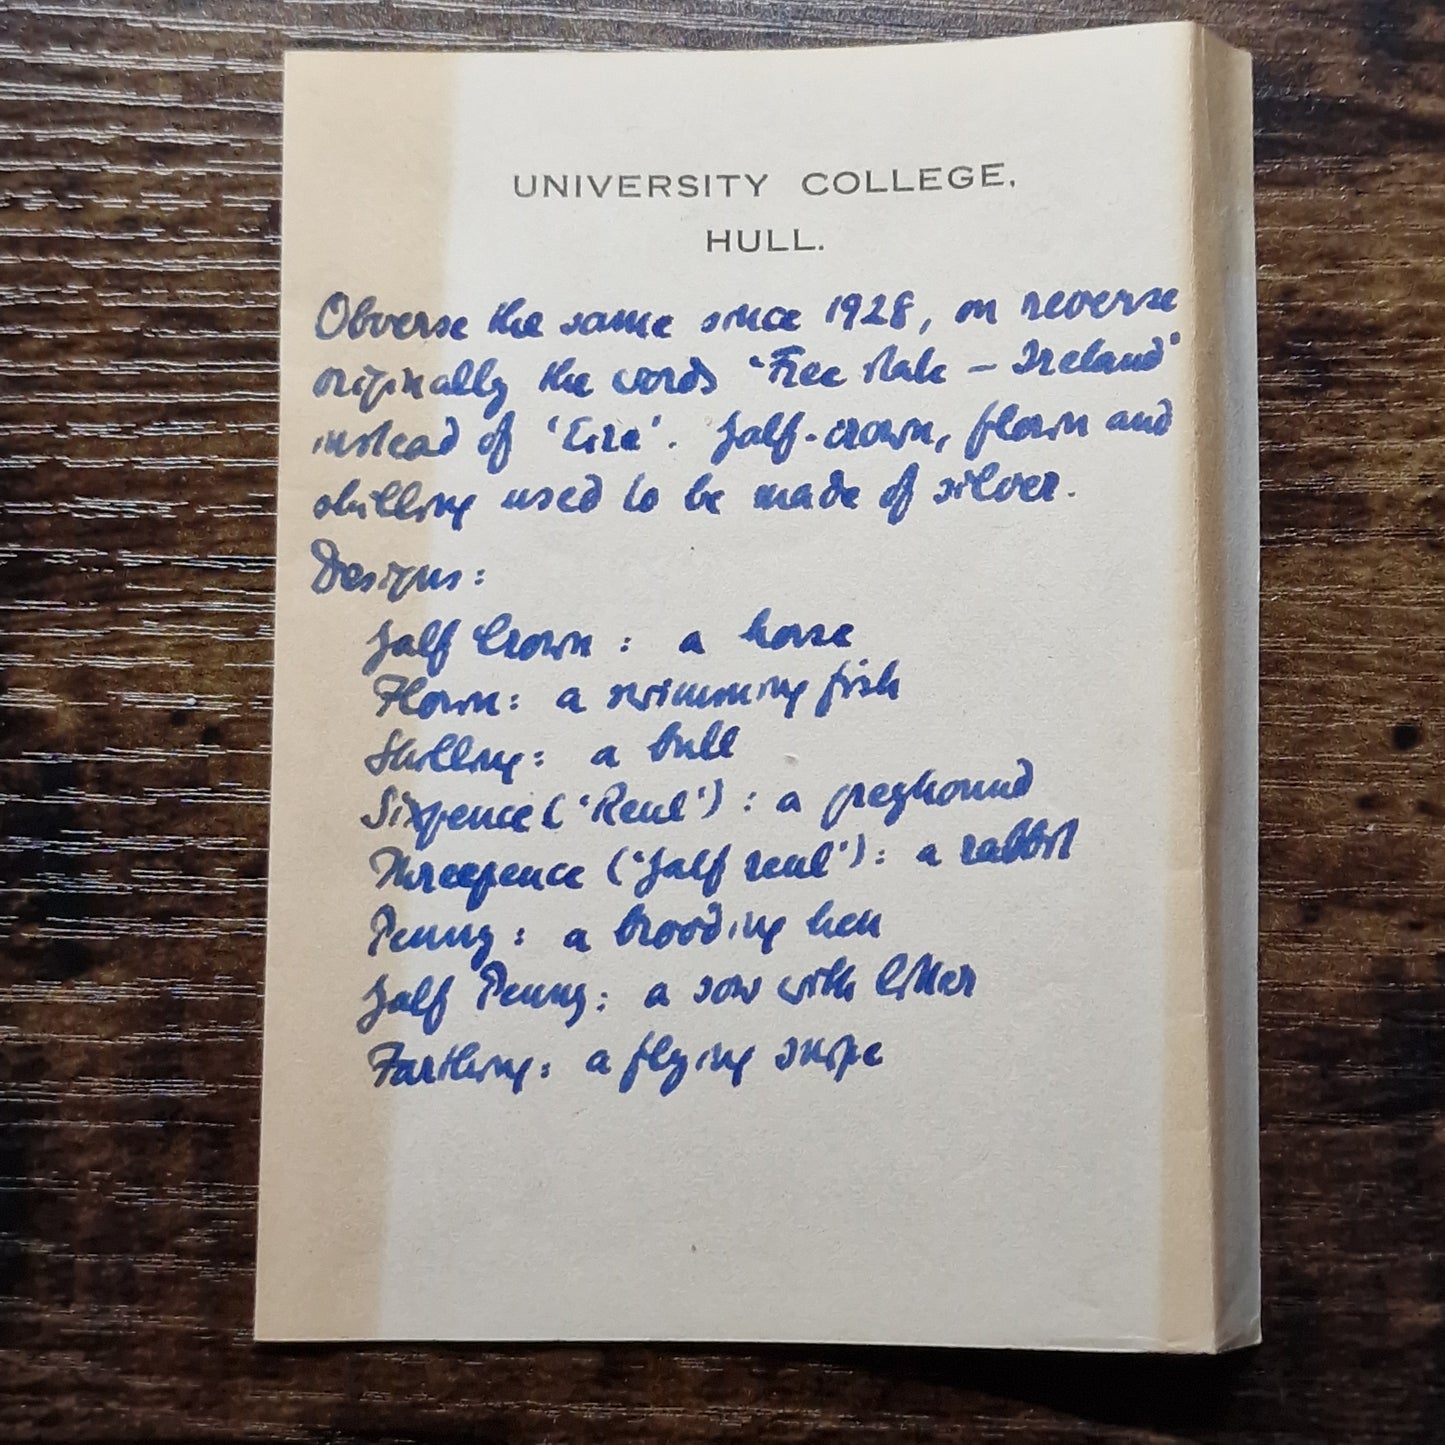 UNIVERSITY COLLEGE,
HULL.
Obverse the same since 1928, on reverse
originally the words 'Free State – Ireland'
instead of 'Eire'. Half-crown, florin and
shilling used to be made of silver.
Designs:
Half Crown: a horse
Florin: a swimming fish
Shilling: a bull
Sixpence ('Reul'): a greyhound
Threepence ('Half reul'): a rabbit
Penny: a brooding hen
Half Penny: a sow with litter
Farthing: a flying snipe